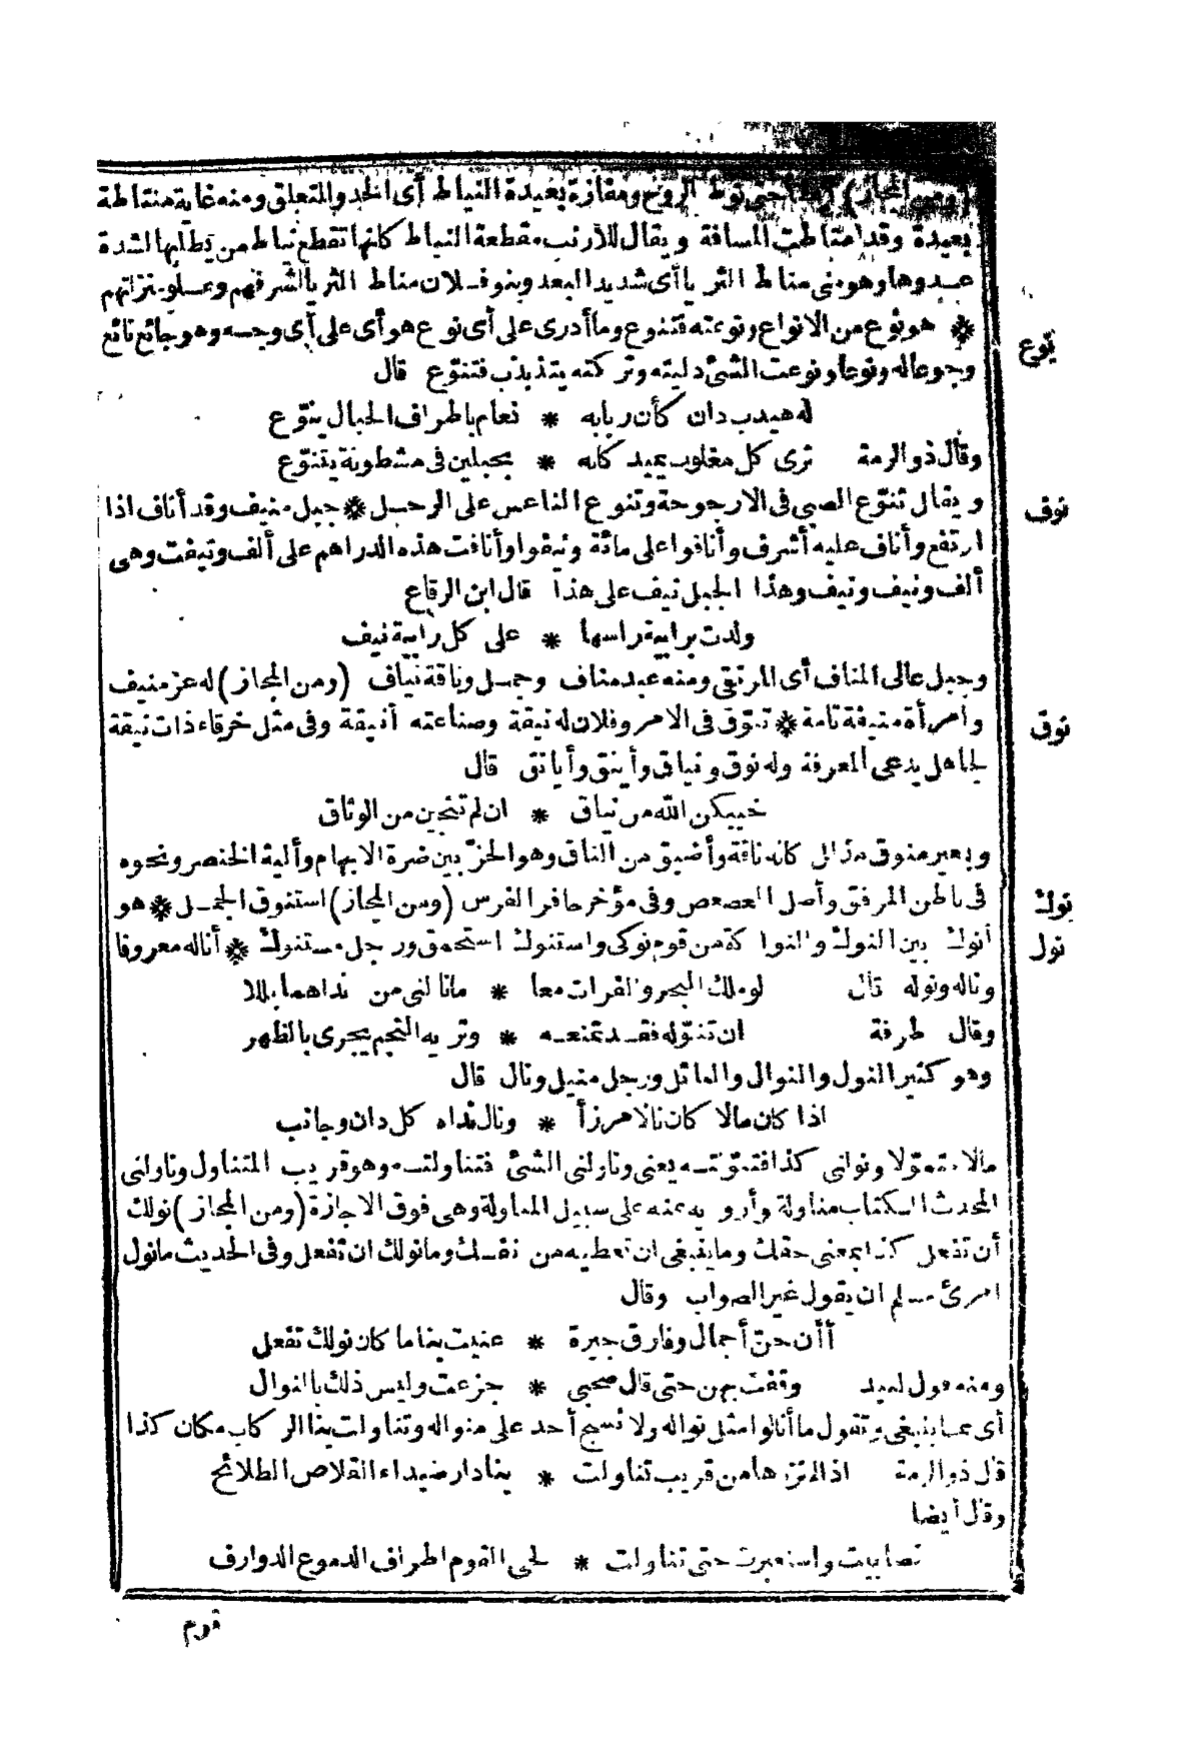 (ومن المجاز) حتى نوط الروح ومفازة بعيدة النياط أى الحد والمتعلق ومنه غاية منتاطة
بعيدة وقد انتاطت المسافة ويقال للأرنب مقطعة النياط كانها تقطع نياط من يطلبها لشدة
عدوها وهو منى مناط الثريا أى شديد البعد وبنو فلان مناط الثريا لشرفهم وعلو منزلتهم
نوع
* هو نوع من الانواع ونوعته فتنوع وما أدرى على أى نوع هو أى على أى وجه وهو جائع نائع
وجوعا له ونوعا ونوعت الشئ دليته وتركته يتذبذب فتنوّع قال
له هيدب دان كأن ربابه * نعام باطراف الحبال ينوّع
وقال ذو الرمة ترى كل مغلوب يميد كانه * بحبلين فى مشطونة يتنوّع
نوف
ويقال تنوّع الصبى فى الارجوحة وتنوع الناعس على الرحل * جبل منيف وقد أناف اذا
ارتفع وأناف عليه أشرف وأنافوا على مائة ونيفوا وأنافت هذه الدراهم على ألف ونيفت وهى
ألف ونيف ونيف وهذا الجبل نيف على هذا قال ابن الرقاع
ولدت برابية راسها * على كل رابية نيف
وجبل عالى المناف أى المرتقى ومنه عبد مناف وجمل وناقة نياف (ومن المجاز) له عز منيف
نوق
وامرأة منيفة تامة * تنوّق فى الامر وفلان له نيقة وصناعته أنيقة وفى مثل خرقاء ذات نيقة
لجاهل يدعى المعرفة وله نوق ونياق وأينق وأيانق قال
خيبكن الله من نياق * ان لم تنجين من الوثاق
وبعير منوق مذلل كانه ناقة وأضيق من الناق وهو الحزّ بين ضرة الابهام وألية الخنصر ونحوه
نوك
فى باطن المرفق وأصل العصعص وفى مؤخر حافر الفرس (ومن المجاز) استنوق الجمل * هو
نول
أنوك بين النوك والنواكة من قوم نوكى واستنوك استحمق ورجل مستنوك * أناله معروفا
وناله ونوله قال لو ملك البحر والفرات معا * ما نالنى من نداهما بللا
وقال طرفة ان تنوّله فقد تمنعه * وتريه النجم يجرى بالظهر
وهو كثير النول والنوال والنائل ورجل منيل ونال قال
اذا كان مالا كان نالا مرزأ * ونال نداه كل دان وجانب
مالا متموّلا ونولنى كذا فتنوّلته يعنى وناولنى الشئ فتناولته وهو قريب المتناول وناولنى
المحدث الكتاب مناولة وأرويه عنه على سبيل المناولة وهى فوق الاجازة (ومن المجاز) نولك
أن تفعل كذا بمعنى حقك وما ينبغى ان تعطيه من نفسك وما نولك ان تفعل وفى الحديث ما نول
امرئ مسلم ان يقول غير الصواب وقال
أأن حنّ أجمال وفارق جيرة * عنيت بنا ما كان نولك تفعل
ومنه قول لبيد وقفت بهن حتى قال صحبى * جزعت وليس ذلك بالنوال
أى مما ينبغى وتقول ما أنالوا مثل نواله ولا نسج أحد على منواله وتناولت بنا الركاب مكان كذا
قال ذو الرمة اذا لم نزرها من قريب تناولت * بنا دار صيداء القلاص الطلائح
وقال أيضا
تصابيت واستعبرت حتى تناولت * لحى القوم اطراف الدموع الذوارف